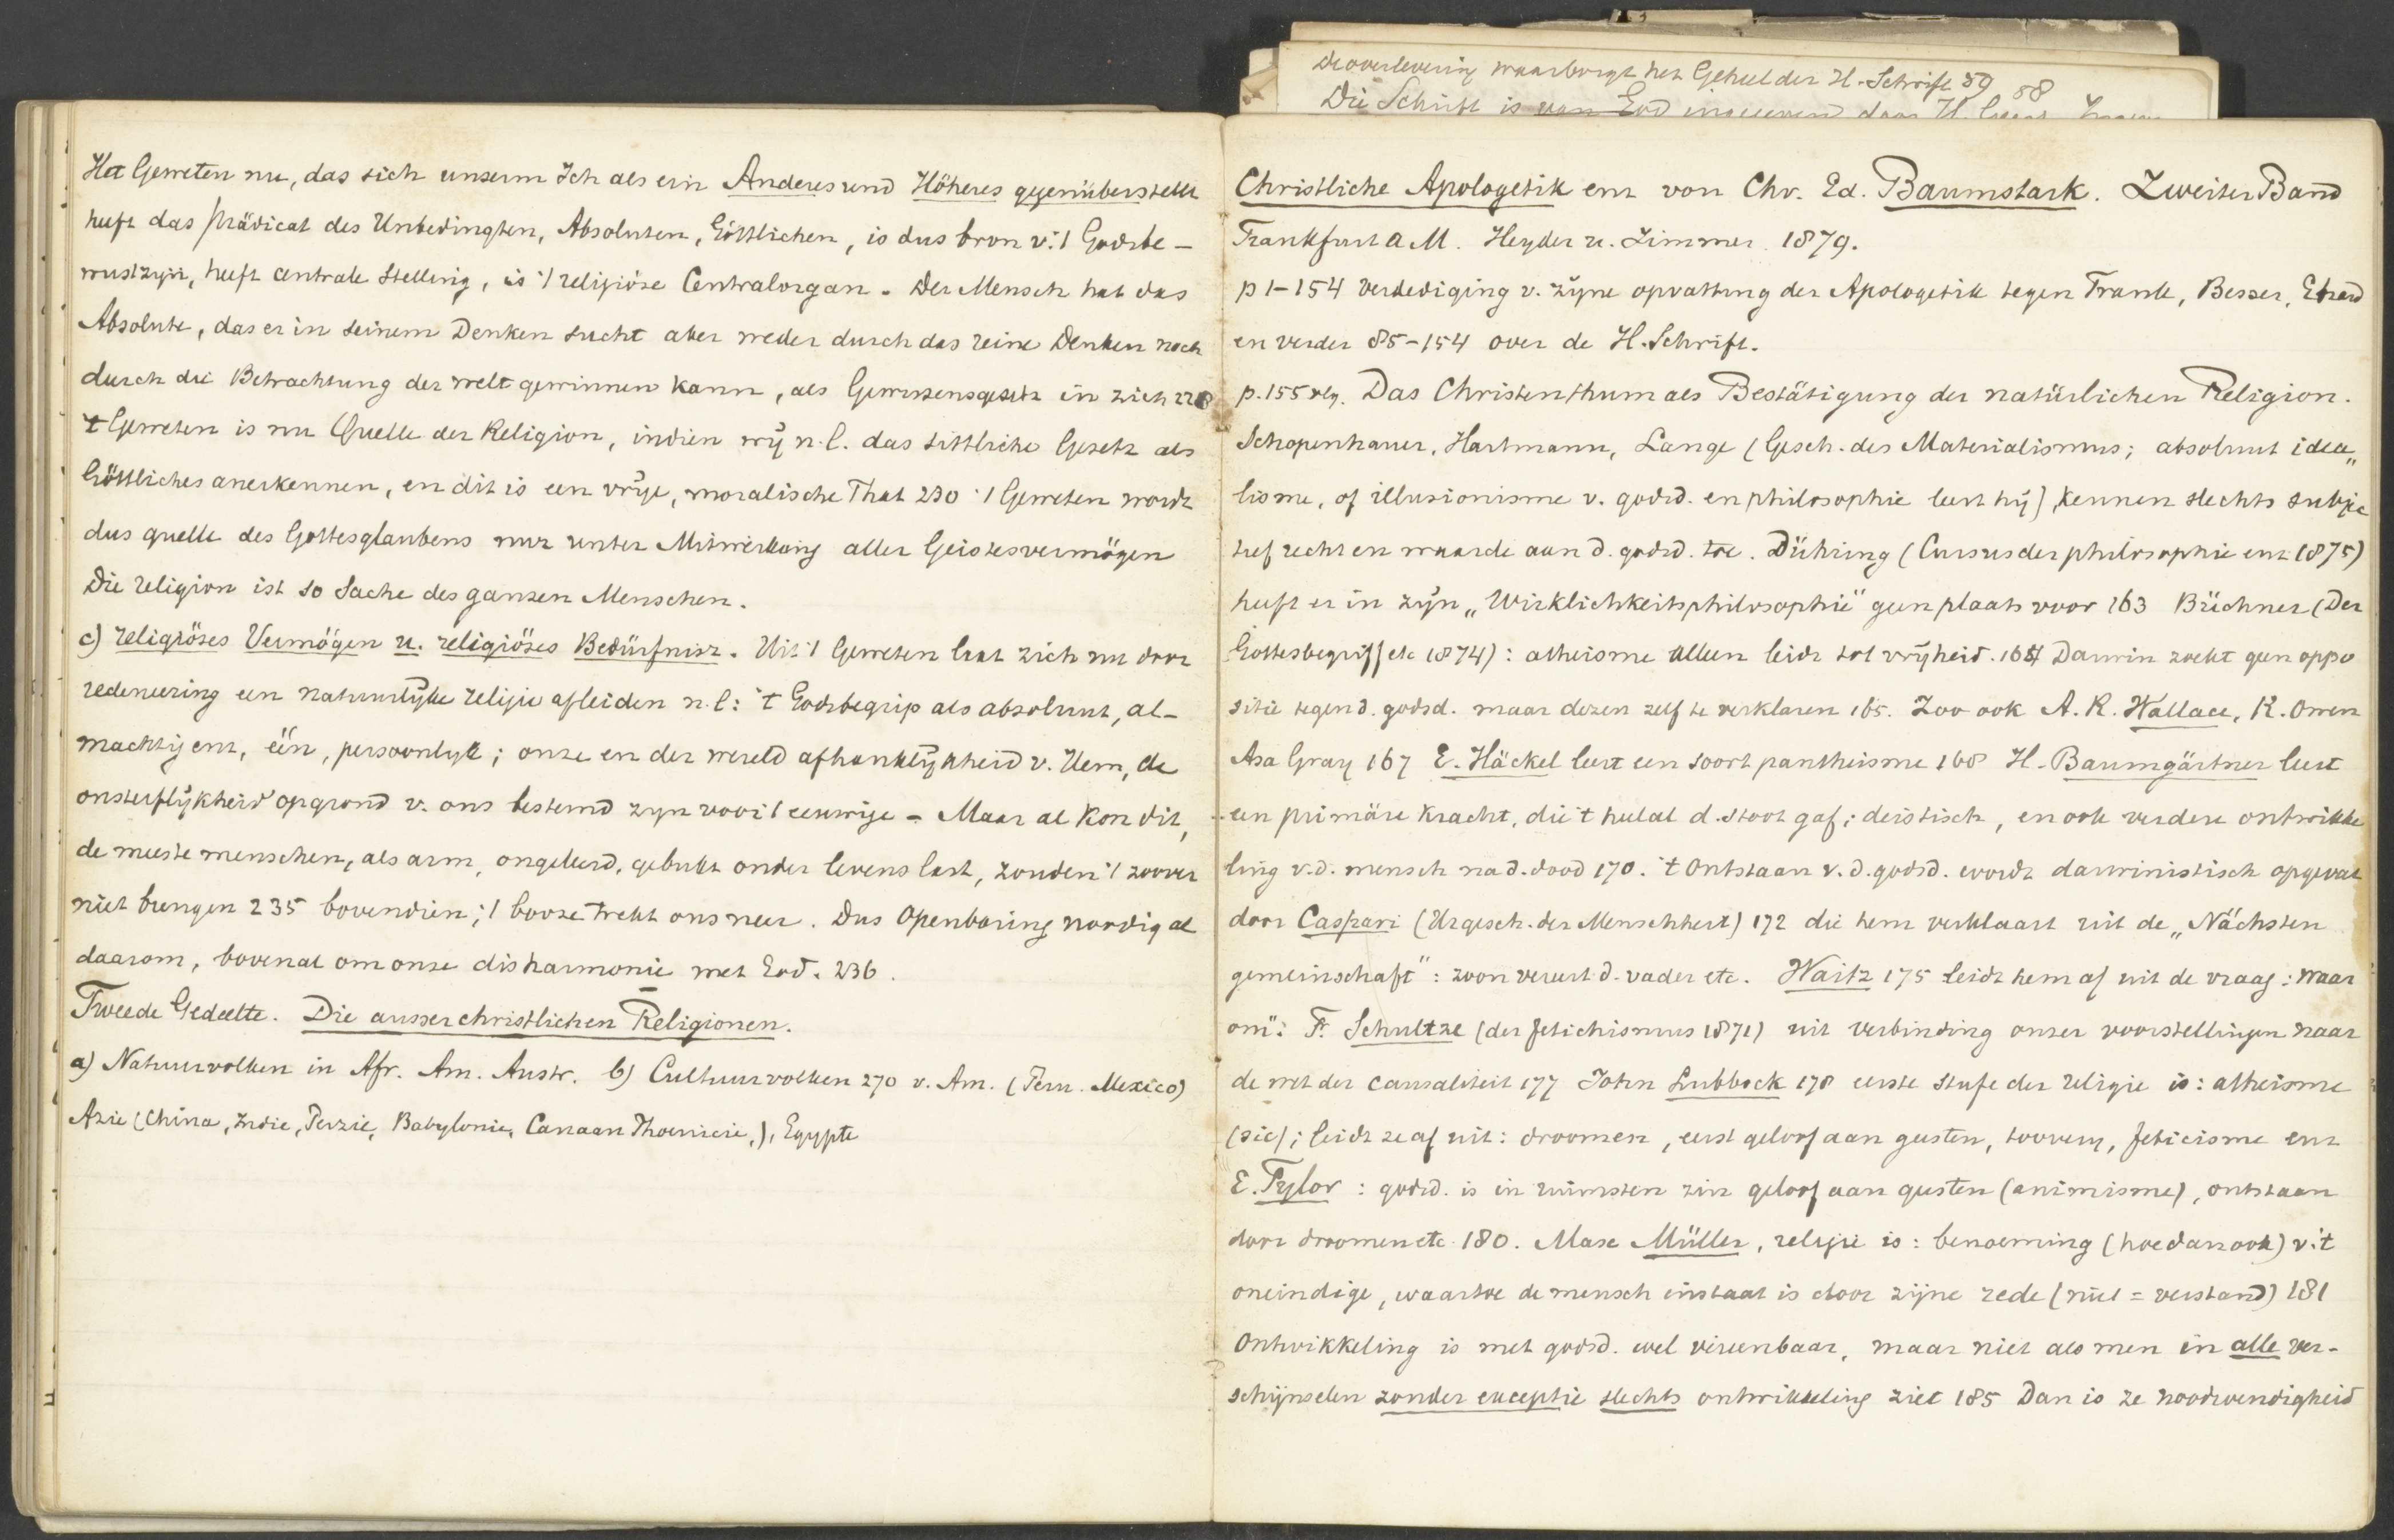 Het Geweten nu, das sich unserm Ich als ein Anderes und Höheres gegenüberstellt
heeft das Prädicat des Unbedingten, Absoluten, Göttlichen, is dus bron v. 't Godsbe-
wustzijn, heeft centrale stelling, is 't religiöse Centralorgan. Der Mensch hat das
Absolute, das er in seinem Denken sucht aber weder durch das reine Denken noch
durch die Betrachtung der Welt gewinnen kann, als Gewissensgesetz in sich 228
't Geweten is nu Quelle der Religion, indien wij n.l. das sittliche Gesetz als
Göttliches anerkennen, en dit is een vrije, moralische That 230 't Geweten wordt
dus quelle des Gottesglaubens nur unter Mitwirkung aller Geistesvermögen
Die religion ist so Sache des ganzen Menschen.
c) religiöses Vermögen u. religiöses Bedürfniss. Uit 't Geweten laat zich nu door
redeneering een natuurlijke religie afleiden n.l: 't Godsbegrip als absoluut, al-
machtig enz, één, persoonlijk; onze en der wereld afhanklijkheid v. Hem, de
onsterflijkheid op grond v. ons bestemd zijn voor 't eeuwige - Maar al kon dit,
de meeste menschen, als arm, ongeleerd, gebukt onder levens last, zouden 't zoover
niet brengen 235 bovendien; 't booze trekt ons neer. Dus Openbaring noodig al
daarom, bovenal om onze disharmonie met God. 236.
Tweede Gedeelte. Die ausserchristlichen Religionen.
a) Natuurvolken in Afr. Am. Austr. b) Cultuurvolken 270 v. Am. (Peru. Mexico)
Azie (China, Indie, Perzie, Babylonie, Canaan Phoenicie,), Egypte
De overlevering waarborgt het Geheel der H. Schrift 59 58
Die Schrift is van God ingegeven door H. Geest
Christliche Apologetik enz von Chr. Ed. Baumstark. Zweiter Band
Frankfurt a M. Heyder u. Zimmer. 1879.
p 1-154 verdediging v. zijne opvatting der Apologetik tegen Frank, Besser, Ebrard
en verder 85-154 over de H. Schrift.
p. 155 vlg. Das Christenthum als Bestätigung der natürlichen Religion.
Schopenhauer, Hartmann, Lange (Gesch. des Materialismus; absoluut idea„
lisme, of illusionisme v. godsd. en philosophie leert hij) kennen slechts subjec
tief recht en waarde aan d. godsd. toe. Dühring (Cursus der philosophie enz 1875)
heeft er in zijn „Wirklichkeitsphilosophie" geen plaats voor 163 Büchner (Der
Gottesbegriff etc 1874): atheisme alleen leidt tot vrijheid. 164 Darwin zoekt geen oppo
sitie tegen d. godsd. maar dezen zelf te verklaren 165. Zoo ook A. R. Wallace, R. Owen
Asa Gray 167 E. Häckel leert een soort pantheisme 168 H. Baumgärtner leert
een primäre Kracht, die 't heelal d. stoot gaf; deistisch, en ook verdere ontwikke
ling v.d. mensch na d. dood 170. 't Ontstaan v. d. godsd. wordt darwinistisch opgevat
door Caspari (Urgesch. der Menschheit) 172 die hem verklaart uit de „Nächsten
gemeinschaft": zoon vereert d. vader etc. Waitz 175 leidt hem af uit de vraag: waar
om": F. Schultze (der Fetichismus 1871) uit verbinding onzer voorstellingen naar
de wet der causaliteit 177 John Lubbock 178 eerste Stufe der religie is: atheisme
(sic); leidt ze af uit: droomen, eerst geloof aan geesten, toovery, feticisme enz
E. Tylor: godsd. is in ruimsten zin geloof aan geesten (animisme), ontstaan
door droomen etc 180. Max Müller, religie is: benoeming (hoe dan ook) v. 't
oneindige, waartoe de mensch instaat is door zijne rede (niet = verstand) 181
Ontwikkeling is met godsd. wel vereenbaar, maar niet als men in alle ver-
schijnselen zonder exceptie slechts ontwikkeling ziet 185 Dan is ze noodwendigheid